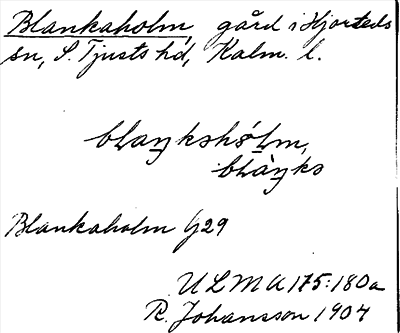 Blankaholm, gård i Hjorteds
sn, S. Tjusts hd, Kalm. l.
blaŋkshólm,
blàŋks
Blankaholm G29
ULMA 175:180a
R. Johansson 1904